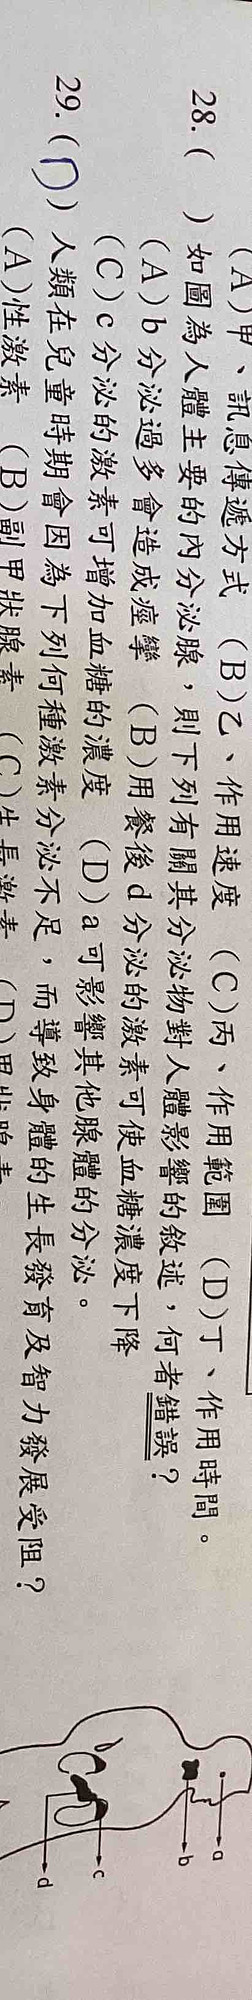 (A)甲、訊息傳遞方式 (B)乙、作用速度 (C)丙、作用範圍 (D)丁、作用時間。
28.( )如圖為人體主要的內分泌腺，則下列有關其分泌物對人體影響的敘述，何者錯誤？
(A)b分泌過多會造成痙攣 (B)用餐後d分泌的激素可使血糖濃度下降
(C)c分泌的激素可增加血糖的濃度 (D)a可影響其他腺體的分泌。
29.(D)人類在兒童時期會因為下列何種激素分泌不足，而導致身體的生長發育及智力發展受阻？
(A)性激素 (B)副甲狀腺素 (C)生長激素 (D)甲狀腺素
a
b
c
d